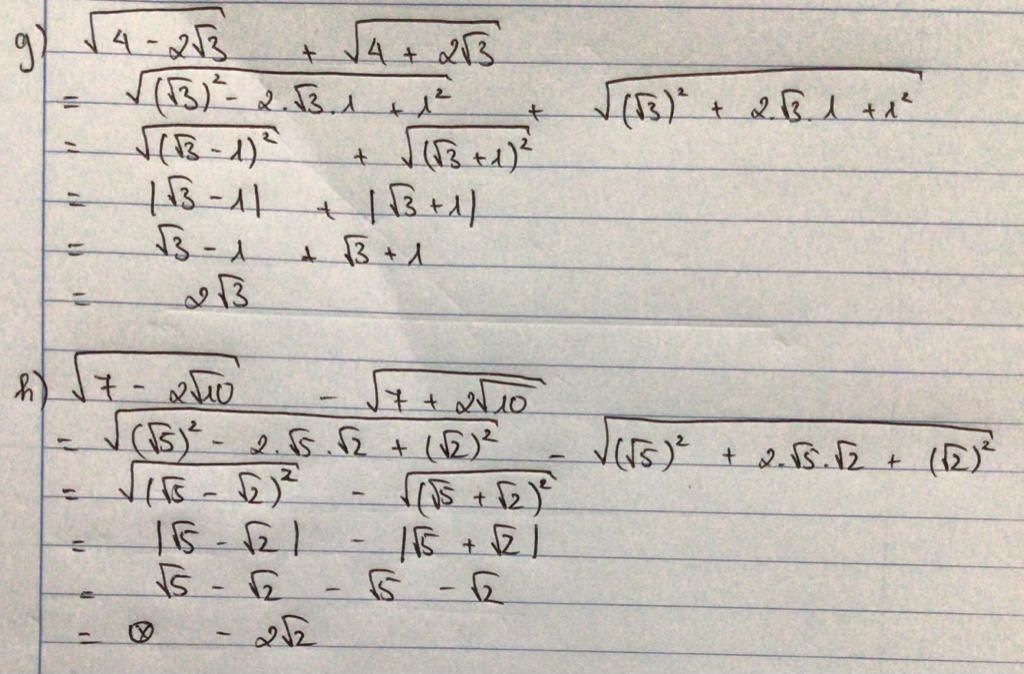 g) √(4 - 2√3) + √(4 + 2√3)
= √((√3)² - 2.√3.1 + 1²) + √((√3)² + 2.√3.1 + 1²)
= √((√3 - 1)²) + √((√3 + 1)²)
= |√3 - 1| + |√3 + 1|
= √3 - 1 + √3 + 1
= 2√3
h) √(7 - 2√10) - √(7 + 2√10)
= √((√5)² - 2.√5.√2 + (√2)²) - √((√5)² + 2.√5.√2 + (√2)²)
= √((√5 - √2)²) - √((√5 + √2)²)
= |√5 - √2| - |√5 + √2|
= √5 - √2 - √5 - √2
= - 2√2